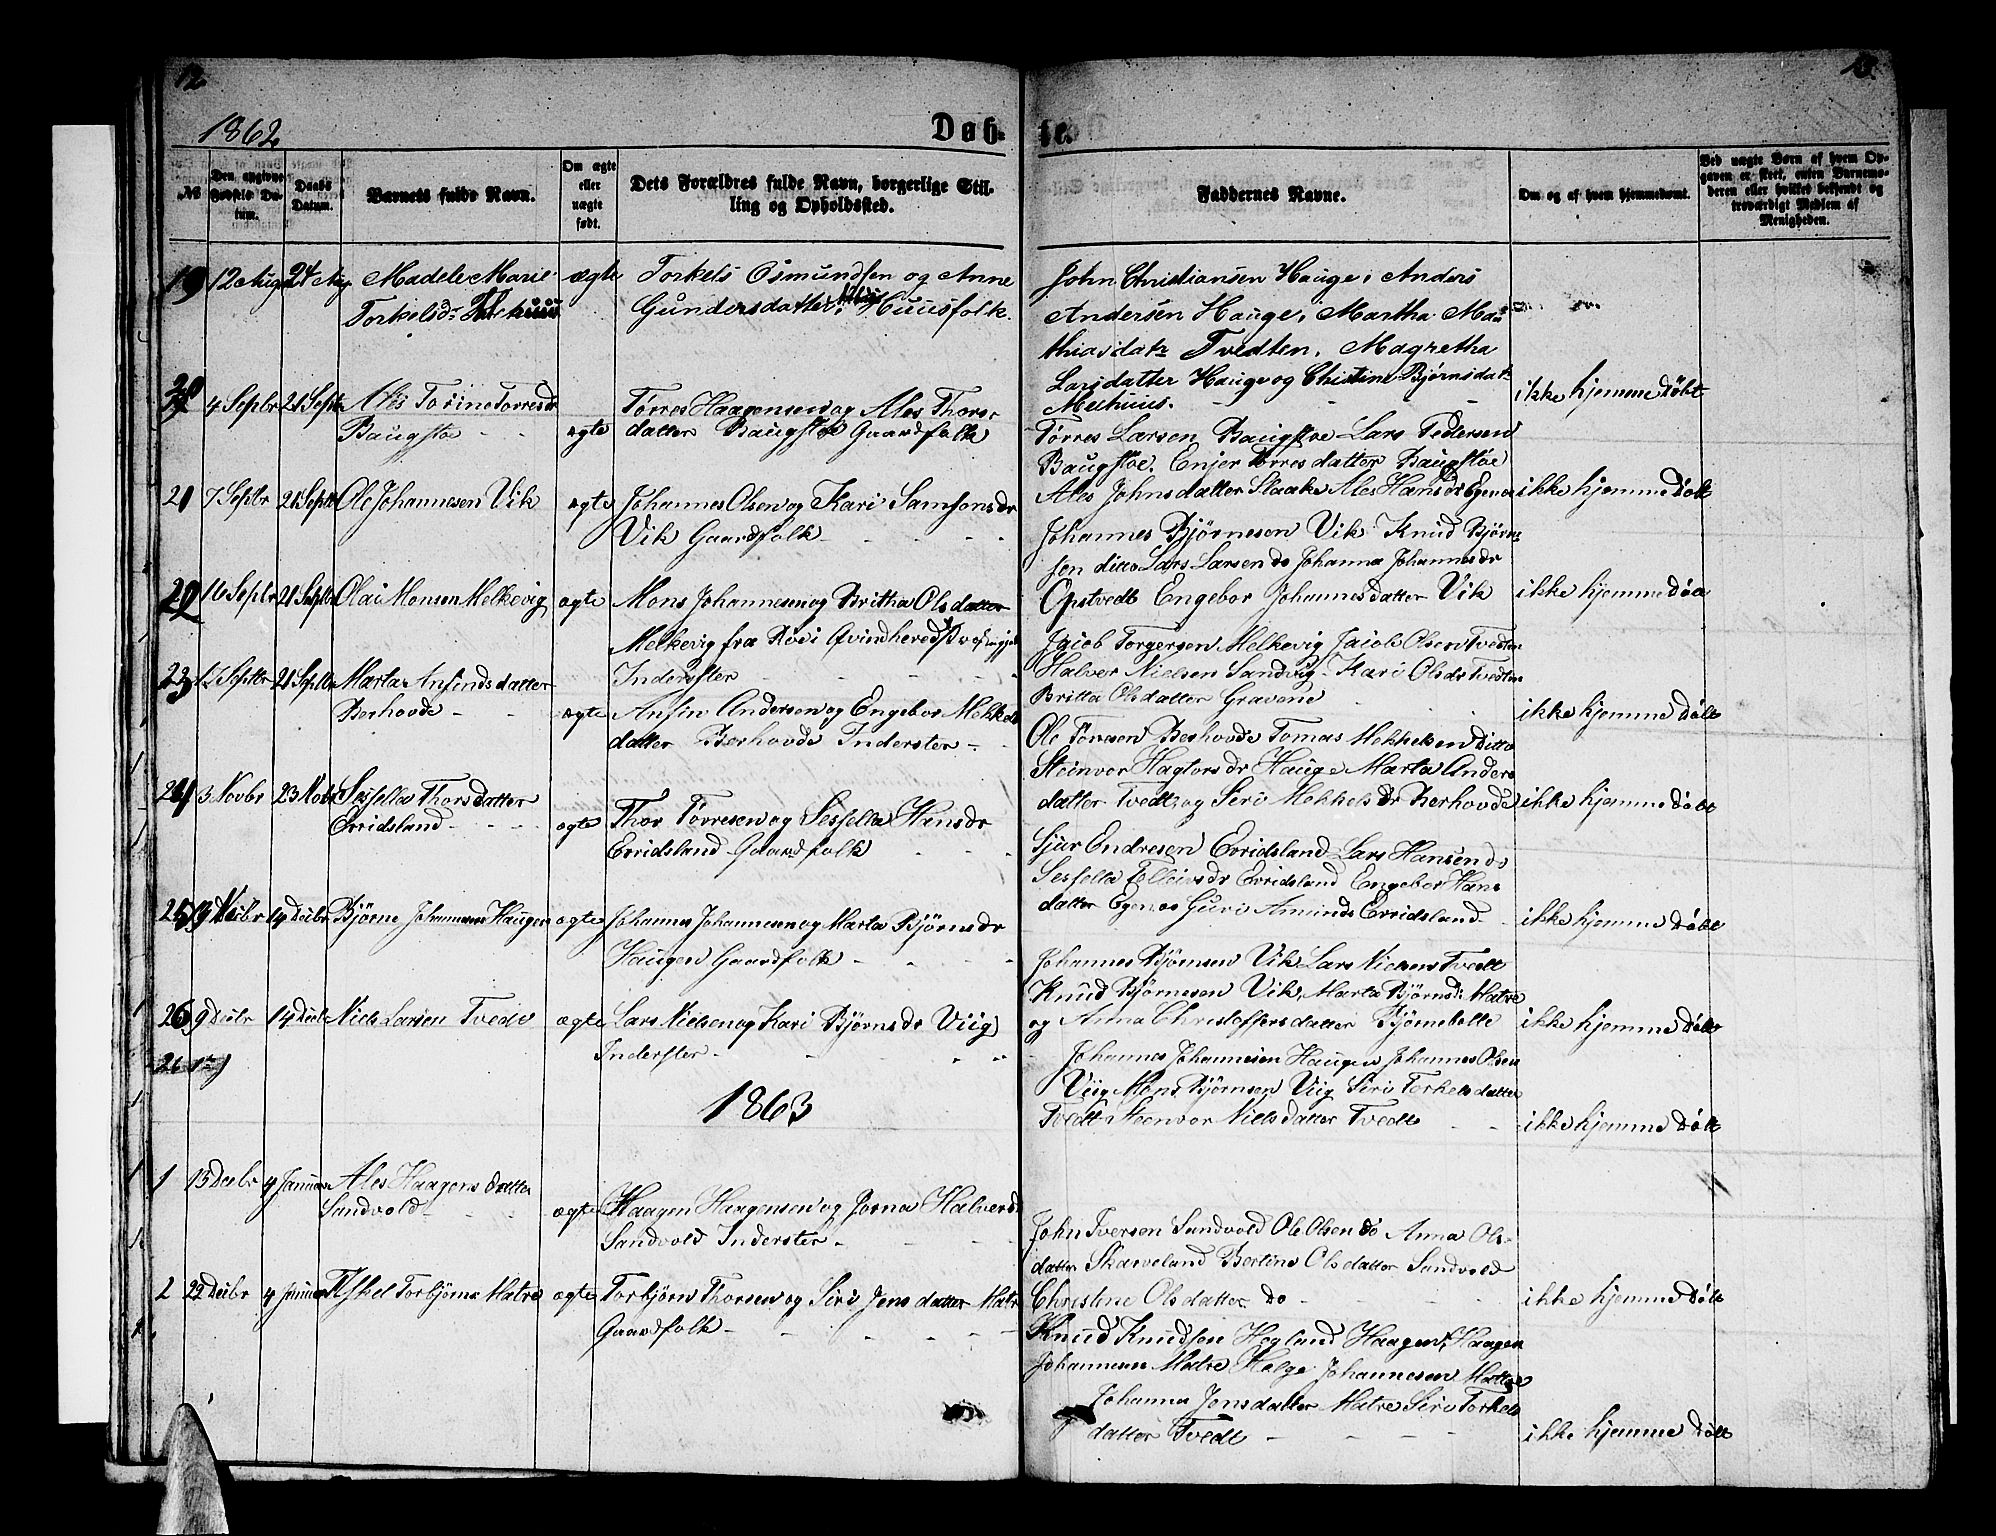 12
13
1862
Døb-
te.
№
Den angivne Fødsels Da-
tum.
Daabs
Datum.
Barnets fulde Navn.
Om ægte
eller
uægte
født.
Dets Forældres fulde Navn, borgerlige Stil-
ling og Opholdssted.
Faddernes Navne.
Om og af hvem hjemmedøbt.
Ved uægte Børn af hvem Op-
gaven er skeet, enten Barnemo-
deren eller hvilket bekjendt og
troværdigt Medlem af
Menigheden.
19 12 Aug 24 Aug Madele Marie ægte Torkels Osmundsen og Anne
Torkelsdr Gundersdatter Huusfolk.
John Christiansen Hauge, Anders
Andersen Hauge, Martha Ma-
thiasdatr Tvedten, Magretha
Larsdatter Hauge og Christine Bjørnsdatr
Melhuus. ikke hjemme døbt
4 Sepbr 21 Septr Ales Torine Torresdr
Baugstøe - - ægte Tørres Haagensen og Ales Thors-
datter Baugstøe Gaardfolk
Tørres Larsen Baugstøe Lars Pedersen
Baugstøe. Enjer Torresdatter Baugstøe
Ales Johnsdatter Slaake Ales Hansdr Egenes ikke hjemme døbt
21 7 Sepbr 21 Septr Ole Johannesen Vik ægte Johannes Olsen og Kari Samsonsdr
Vik Gaardfolk
Johannes Bjørnesen Vik Knud Bjørn-
sen ditto Lars Larsen do Johanna Johannesdr
Opstvedt Engebor Johannesdatter Vik ikke hjemme døa
22 16 Sepbr 21 Septr Olai Monsen Melkevig ægte Mons Johannesen og Britha Olsdatter
Melkevig fra Qvindhered
Inderster
Jacob Torgersen Melkevig Jacob Olsen Tvedten
Halver Nielsen Sandvig Kari Olsdr Tvedten
Britta Olsdatter Gravene ikke hjemme døbt
23 Septbr 21 Septbr Marta Anfindsdatter
Berhovde - - ægte Anfin Andersen og Engebor Mekkels
datter Berhovde Inderster
Ole Tørresen Berhovde Tomas Mekkelsen Ditto
Steinvor Hagtorsdr Hauge Marta Anders
datter Tvedt og Seri Mekkelsdr Berhovde ikke hjemme døbt
24 3 Novbr 23 Nobr Sesfella Thorsdatter
Erridsland ægte Thor Tørresen og Sesfella Hansdr
Erridsland Gaardfolk
Sjur Endresen Erridsland Lars Hansen do
Sesfella Erridsland Engebor Hans
datter Egenes Guri Aminds Erridsland ikke hjemme døbt
25 Decbr 14 Decbr Bjørne Johannesen Haugen ægte Johannes Johannesen og Marta Bjørnsdr
Haugen Gaardfolk
Johannes Bjørnsen Vik Lars Nielsen Tvedt
Knud Bjørnesen Vik, Marta Bjørnsdr Matre
og Anna Christoffersdatter ikke hjemme døbt
26 9 Decbr 14 Decbr Niels Larsen Tvedt ægte Lars Nielsen og Kari Bjørnsdr Viig
Inderster
Johannes Johannesen Haugen Johannes Olsen
Viig Mons Bjørnsen Viig Siri Torkelsdatter
Tvedt Steenvor Nielsdatter Tvedt ikke hjemme døbt
1863
1 13 Decbr 4 Januar Ales Haagensdatter
Sandvold ægte Haagen Haagensen og Jorna Halversdr
Sandvold Inderster
John Iversen Sandvold Ole Olsen do Anna Ols-
datter Skarveland Bertine Olsdatter Sandvold
Christine Olsdatter do ikke hjemme døbt
2 22 Decbr 4 Januar Askel Torbjørns Matre ægte Torbjørn Thorsen og Siri Jensdatter Matre
Gaardfolk
Knud Knudsen Hogland Haagen Haagen
Johannesen Matre Helge Johannesen Matre
Johanna Jonsdatter Matre Siri Torkels
datter Tvedt ikke hjemme døbt